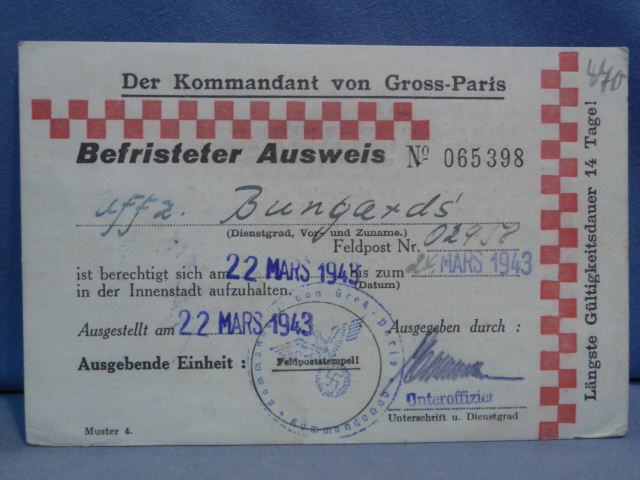 Der Kommandant von Gross-Paris
440
Befristeter Ausweis No 065398
Uffz. Bungards
(Dienstgrad, Vor- und Zuname.)
Feldpost Nr. 02958
ist berechtigt sich am 22 MARS 1943 bis zum 24 MARS 1943
in der Innenstadt aufzuhalten. (Datum)
Ausgestellt am 22 MARS 1943 Ausgegeben durch :
Ausgebende Einheit : Feldpoststempel!
Kommandantur von Groß-Paris
Unteroffizier
Unterschrift u. Dienstgrad
Muster 4.
Längste Gültigkeitsdauer 14 Tage!